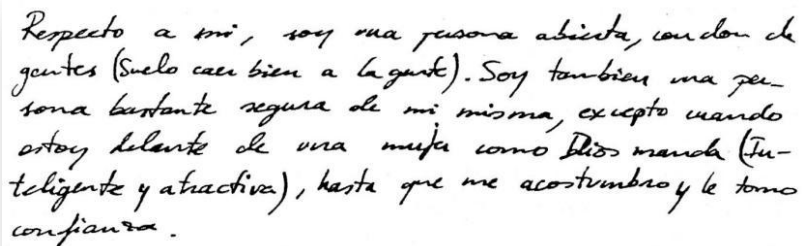 Respecto a mi, soy una persona abierta, con don de
gentes (Suelo caer bien a la gente). Soy tambien una per-
sona bastante segura de mi misma, excepto cuando
estoy delante de una mujer como Dios manda (In-
teligente y atractiva), hasta que me acostumbro y le tomo
confianza.